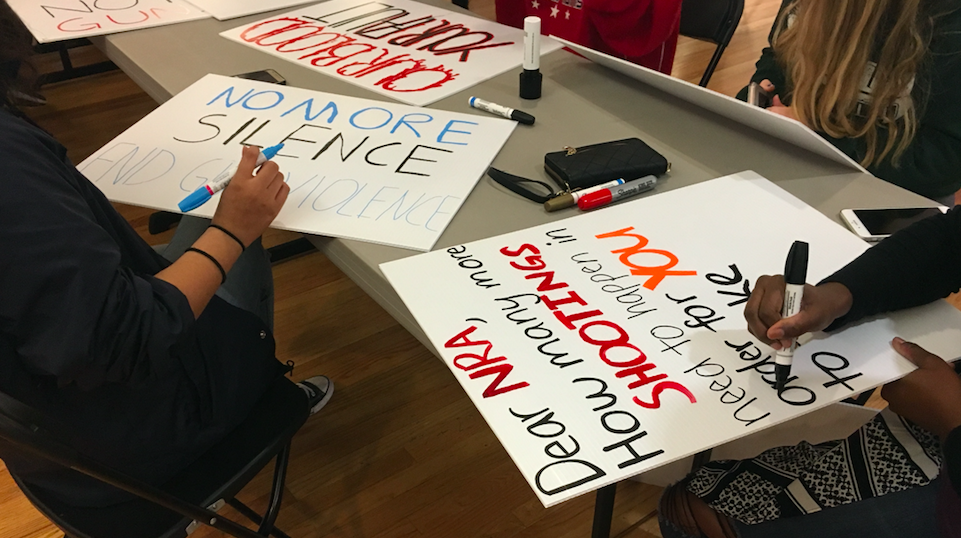 NO MORE
SILENCE
END GUN VIOLENCE
Dear NRA,
How many more
SHOOTINGS
need to happen in
order for YOU
to
OUR BLOOD
YOUR